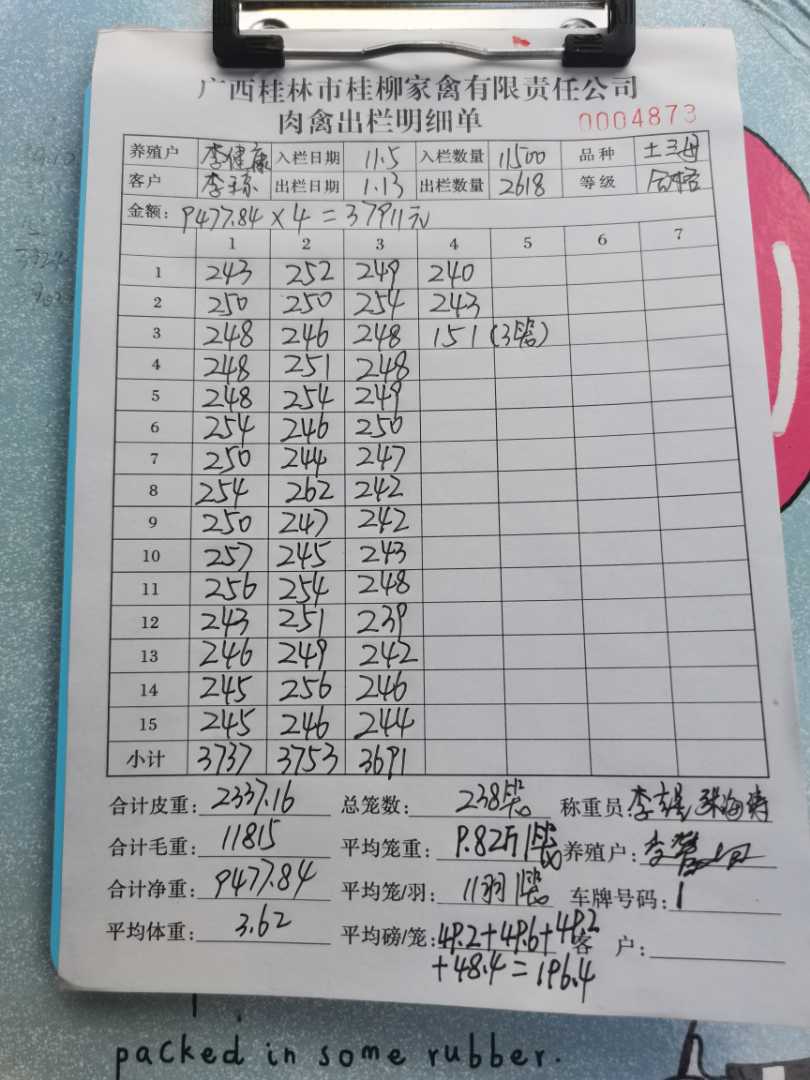 广西桂林市桂柳家禽有限责任公司
肉禽出栏明细单 0004873
养殖户 李健康 入栏日期 11.5 入栏数量 11500 品种 土三母
客户 李琼 出栏日期 1.13 出栏数量 2618 等级 合格
金额: 9477.84 × 4 = 37911元
1 2 3 4 5 6 7
1 243 252 249 240
2 250 250 254 243
3 248 246 248 151 (3笼)
4 248 251 248
5 248 254 249
6 254 246 250
7 250 244 247
8 254 262 242
9 250 247 242
10 257 245 243
11 256 254 248
12 243 251 239
13 246 249 242
14 245 256 246
15 245 246 244
小计 3737 3753 3691
合计皮重: 2337.16 总笼数: 238笼 称重员:
合计毛重: 11815 平均笼重: 9.82斤1笼 养殖户:
合计净重: 9477.84 平均笼/羽: 11羽1笼 车牌号码: 1
平均体重: 3.62 平均磅/笼: 49.2+49.6+49.2 客户:
+48.4=196.4
packed in some rubber.